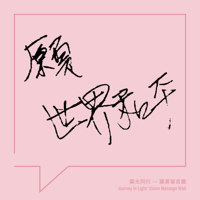 願
世界和平
光同行 — 願景留言牆
Journey In Light: Vision Message Wall